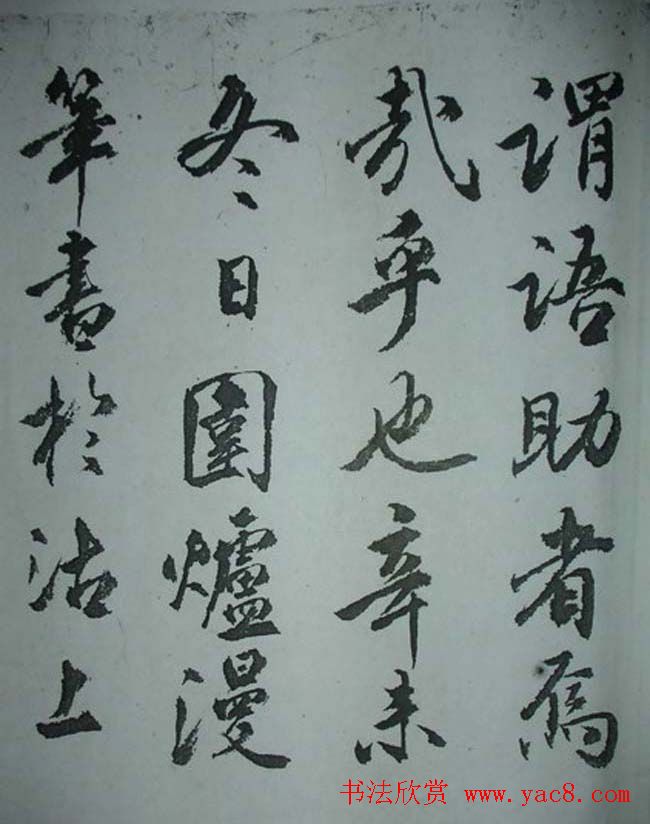 謂語助者焉
哉乎也辛未
冬日圍爐漫
筆書於沽上
书法欣赏 www.yac8.com